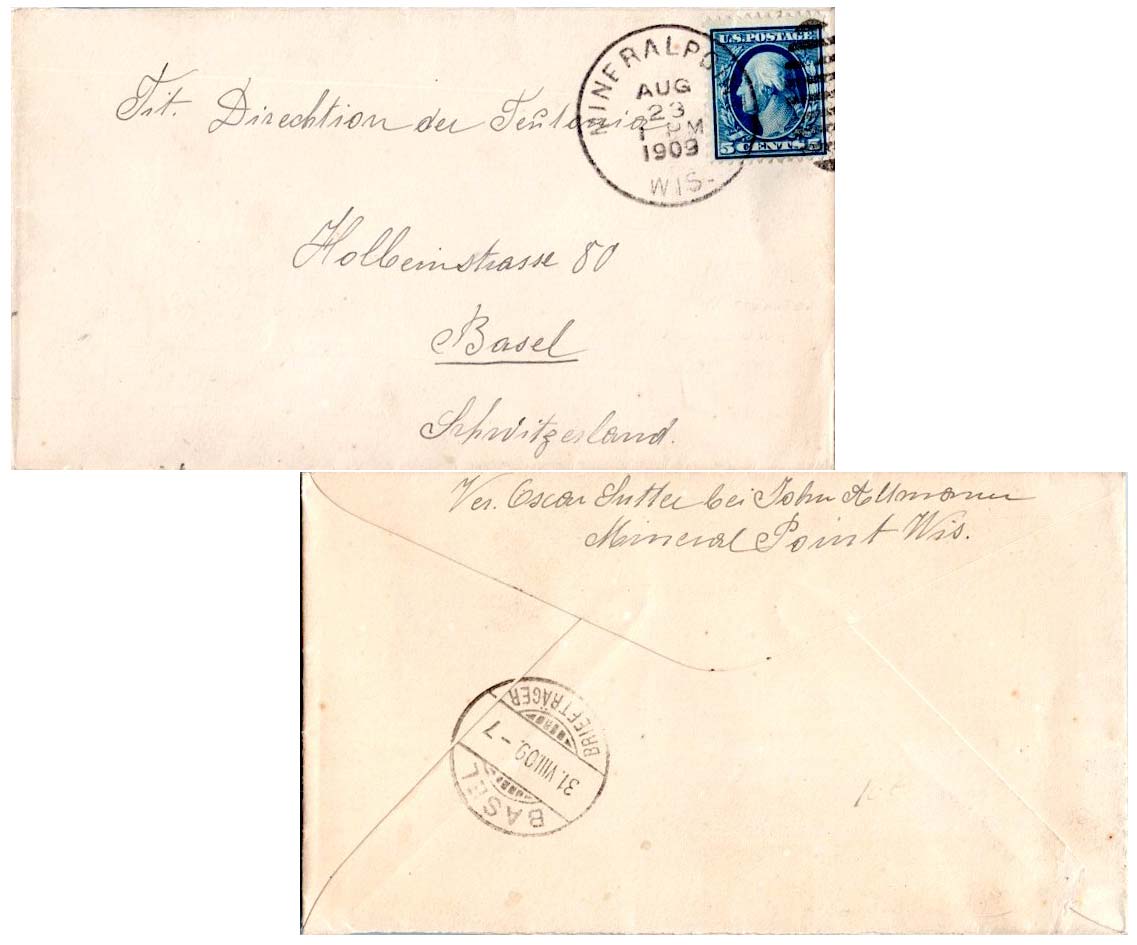 MINERAL PO
AUG
23
1 PM
1909
WIS.
U.S. POSTAGE
5 CENTS 5
Tit. Direchtion der Teutonia
Holbeinstrasse 80
Basel
Schwitzerland.
Ver. Oscar Sutter bei John Allmann
Mineral Point Wis.
BRIEFTRÄGER
31.VIII.09.–7
BASEL